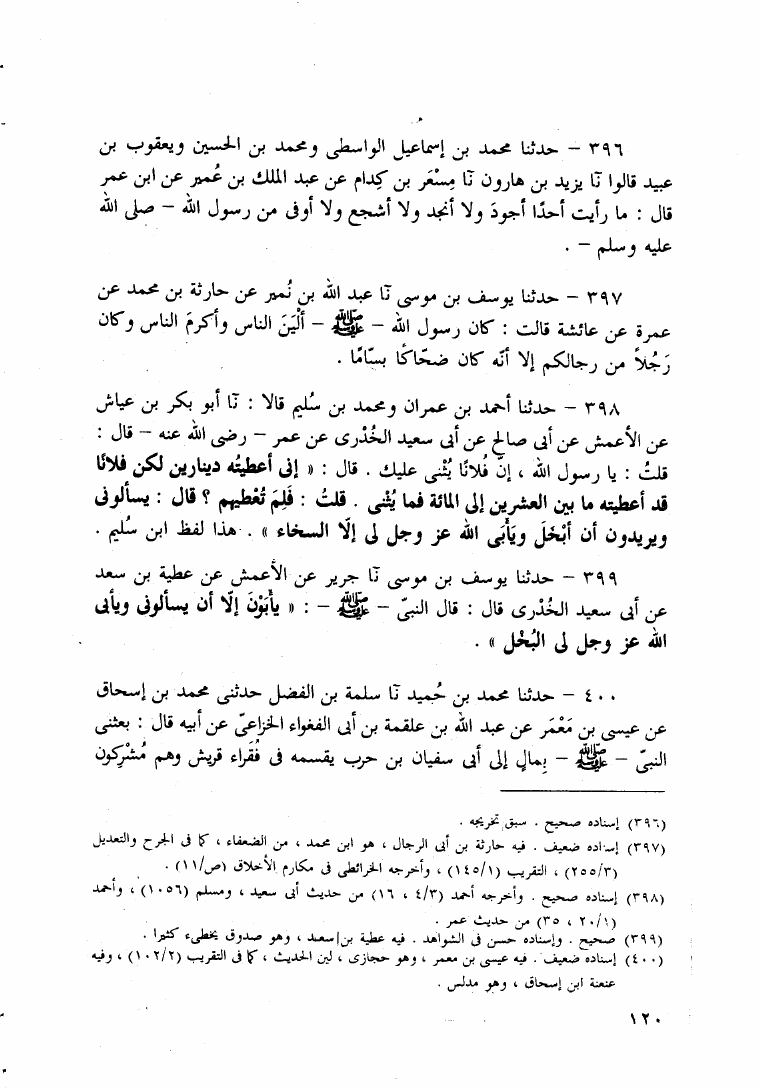 ٣٩٦ – حدثنا محمد بن إسماعيل الواسطى ومحمد بن الحسين ويعقوب بن
عبيد قالوا نَا يزيد بن هارون نَا مِسْعَر بن كِدام عن عبد الملك بن عُمير عن ابن عمر
قال : ما رأيت أحدًا أجودَ ولا أنجد ولا أشجع ولا أوفى من رسول الله – صلى الله
عليه وسلم – .
٣٩٧ – حدثنا يوسف بن موسى نَا عبد الله بن نُمير عن حارثة بن محمد عن
عمرة عن عائشة قالت : كان رسول الله – ﷺ – أَلْيَنَ الناس وأكرمَ الناس وكان
رَجُلاً من رجالكم إلا أنّه كان ضحّاكًا بسّامًا .
٣٩٨ – حدثنا أحمد بن عمران ومحمد بن سُليم قالا : نَا أبو بكر بن عياش
عن الأعمش عن أبى صالح عن أبى سعيد الخُدْرى عن عمر – رضى الله عنه – قال :
قلتُ : يا رسول الله ، إنّ فُلانًا يُثْنى عليك . قال : « إنى أعطيتُه دينارين لكن فلانًا
قد أعطيته ما بين العشرين إلى المائة فما يُثْنى . قلتُ : فَلِمَ تُعْطيهم ؟ قال : يسألونى
ويريدون أن أبْخَلَ ويَأْبَى الله عز وجل لى إلّا السخاء » . هذا لفظ ابن سُليم .
٣٩٩ – حدثنا يوسف بن موسى نَا جرير عن الأعمش عن عطية بن سعد
عن أبى سعيد الخُدْرى قال : قال النبىّ – ﷺ – : « يأْبَوْنَ إلّا أن يسألونى ويأبى
الله عز وجل لى البُخْل » .
٤٠٠ – حدثنا محمد بن حُميد نَا سلمة بن الفضل حدثنى محمد بن إسحاق
عن عيسى بن مَعْمَر عن عبد الله بن علقمة بن أبى الفغواء الخزاعىّ عن أبيه قال : بعثنى
النبىّ – ﷺ – بِمالٍ إلى أبى سفيان بن حرب يقسمه فى فُقَراء قريش وهم مُشْرِكون
(٣٩٦) إسناده صحيح . سبق تخريجه .
(٣٩٧) إسناده ضعيف . فيه حارثة بن أبى الرجال ، هو ابن محمد ، من الضعفاء ، كما فى الجرح والتعديل
(٢٥٥/٣) ، التقريب (١٤٥/١) ، وأخرجه الخرائطى فى مكارم الأخلاق (ص/١١) .
(٣٩٨) إسناده صحيح . وأخرجه أحمد (٤/٣ ، ١٦) من حديث أبى سعيد ، ومسلم (١٠٥٦) ، وأحمد
(٢٠/١ ، ٣٥) من حديث عمر .
(٣٩٩) صحيح . وإسناده حسن فى الشواهد . فيه عطية بن سعد ، وهو صدوق يخطىء كثيرا .
(٤٠٠) إسناده ضعيف . فيه عيسى بن معمر ، وهو حجازى ، لين الحديث ، كما فى التقريب (١٠٢/٢) ، وفيه
عنعنة ابن إسحاق ، وهو مدلس .
١٢٠